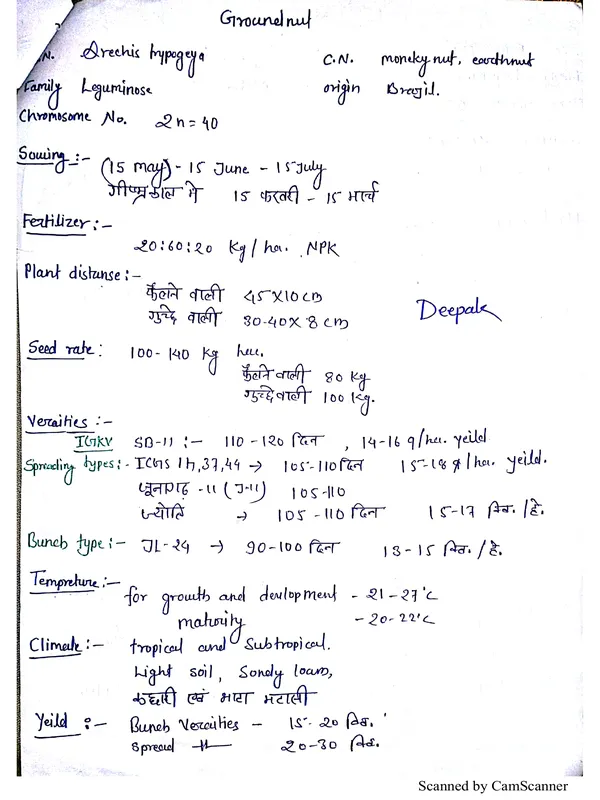 Groundnut
.N. Arechis hypogeya C.N. moneky nut, earthnut
Family Leguminose origin Brazil.
Chromosome No. 2n = 40
Sowing :- (15 may) - 15 June - 15 July
ग्रीष्मकाल में 15 फरवरी - 15 मार्च
Fertilizer :-
20:60:20 Kg/ha. NPK
Plant distanse :-
फैलने वाली 45 X 10 cm
गुच्छे वाली 30-40 X 8 cm
Deepak
Seed rate : 100-140 Kg hec.
फैलने वाली 80 Kg
गुच्छे वाली 100 Kg.
Veraities :-
IGKV SB-11 :- 110-120 दिन , 14-16 q/ha. yeild
Spreading types :- ICGS 11,37,44 → 105-110 दिन 15-18 q/ha. yeild.
जूनागढ़ -11 (J-11) 105-110
ज्योति → 105-110 दिन 15-17 क्वि. /हे.
Bunch type :- JL-24 → 90-100 दिन 13-15 क्वि. /हे.
Tempreture :-
for growth and devlopment - 21-27°C
maturity - 20-22°C
Climate :- tropical and Subtropical.
Light soil, Sandy loam,
कछारी एवं भाटा मटासी
Yeild :- Bunch Veraities - 15-20 क्वि.
Spread -11- 20-30 क्वि.
Scanned by CamScanner